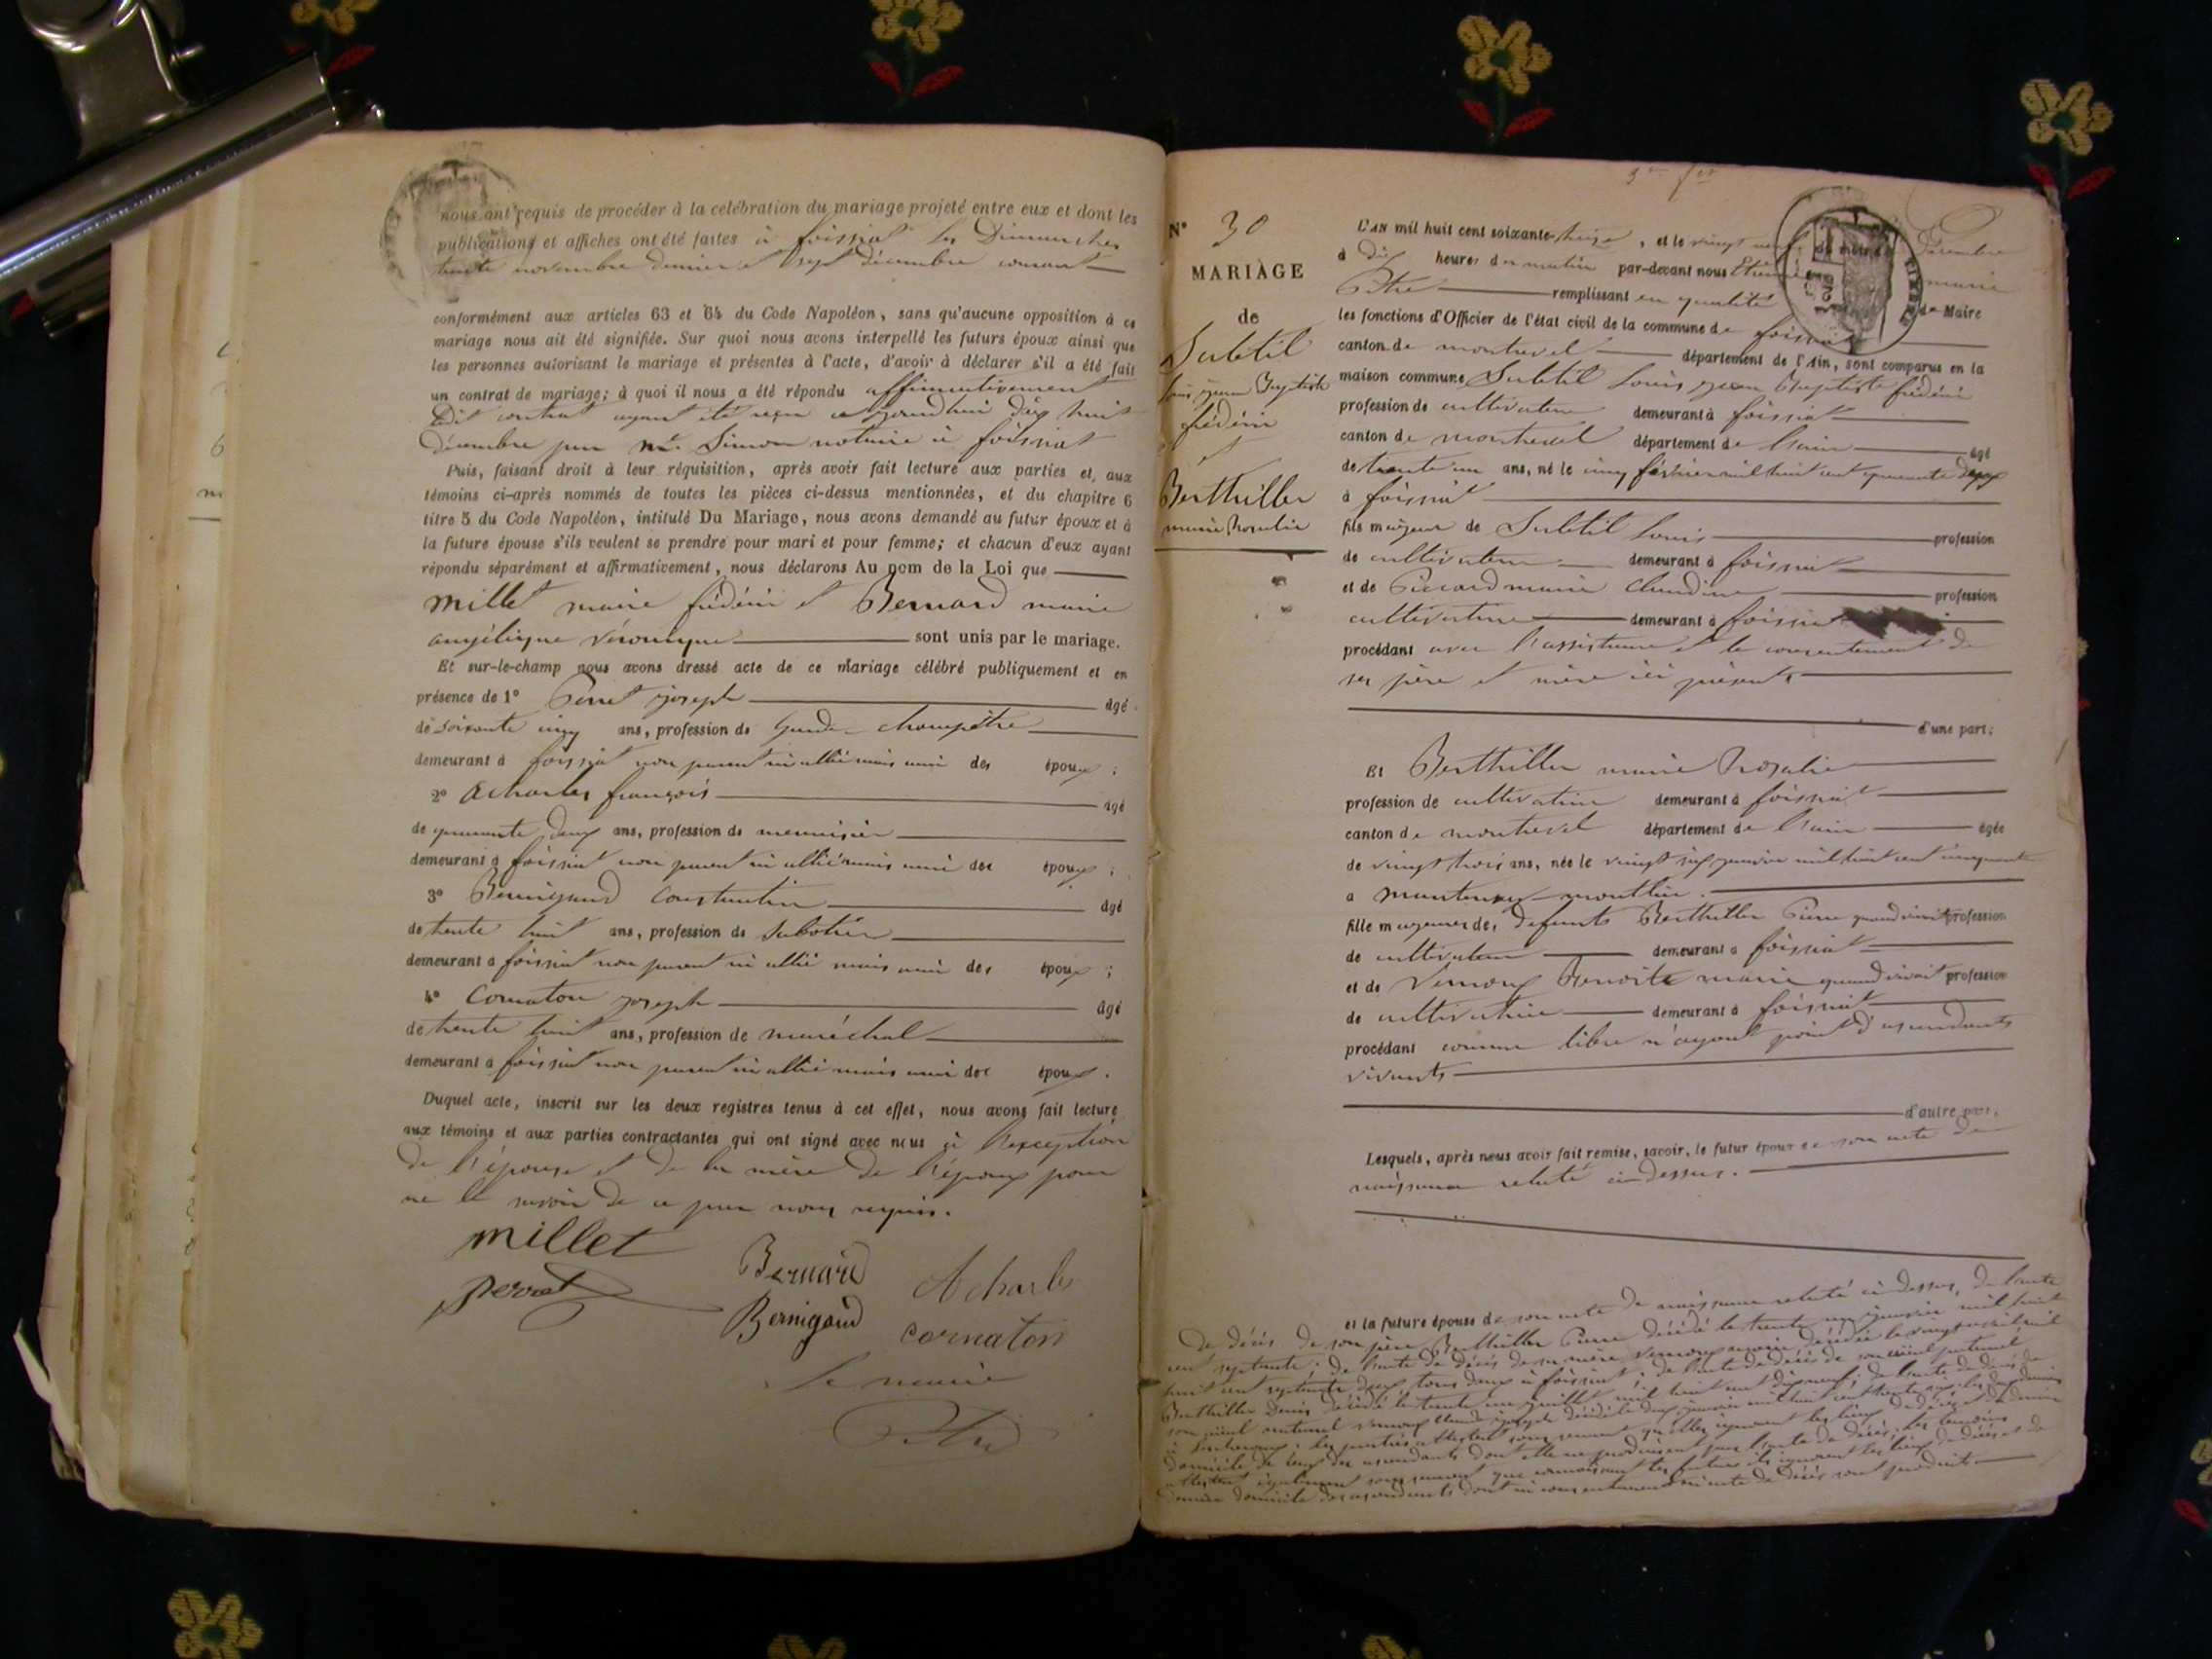 nous ont requis de procéder à la celébration du mariage projeté entre eux et dont les
publications et affiches ont été faites à foissiat les Dimanches
trente novembre dernier et sept décembre courant
conformément aux articles 63 et 64 du Code Napoléon, sans qu'aucune opposition à ce
mariage nous ait été signifiée. Sur quoi nous avons interpellé les futurs époux ainsi que
les personnes autorisant le mariage et présentes à l'acte, d'avoir à déclarer s'il a été fait
un contrat de mariage; à quoi il nous a été répondu affirmativement
ledit contrat ayant été reçu aujourd'hui dix huit
décembre par me Simon notaire à foissiat
Puis, faisant droit à leur réquisition, après avoir fait lecture aux parties et, aux
témoins ci-après nommés de toutes les pièces ci-dessus mentionnées, et du chapitre 6
titre 5 du Code Napoléon, intitulé Du Mariage, nous avons demandé au futur époux et à
la future épouse s'ils veulent se prendre pour mari et pour femme; et chacun d'eux ayant
répondu séparément et affirmativement, nous déclarons Au nom de la Loi que
millet marie frédéric et Bernard marie
angélique véronique sont unis par le mariage.
Et sur-le-champ nous avons dressé acte de ce mariage célébré publiquement et en
présence de 1° Perret joseph âgé
de soixante cinq ans, profession de garde champêtre
demeurant à foissiat non parent ni allié mais ami des époux ;
2° Acharles françois âgé
de quarante deux ans, profession de menuisier
demeurant à foissiat non parent ni allié mais ami des époux ;
3° Bernigaud Constantin âgé
de trente huit ans, profession de sabotier
demeurant à foissiat non parent ni allié mais ami des époux ;
4° Cornaton joseph âgé
de trente huit ans, profession de maréchal
demeurant à foissiat non parent ni allié mais ami des époux .
Duquel acte, inscrit sur les deux registres tenus à cet effet, nous avons fait lecture
aux témoins et aux parties contractantes qui ont signé avec nous à l'exception
de l'épouse et de la mère de l'époux pour
ne le savoir de ce par nous requis.
millet
Bernard Acharles
perret
Bernigaud cornaton
le maire
Pitre
N° 30
MARIAGE
de
Subtil
Louis jean Baptiste
frédéric
et
Berthiller
marie Rosalie
L'AN mil huit cent soixante-treize, et le vingt Décembre
à dix heures du matin par-devant nous Etienne marie
Pitre remplissant en qualité de Maire
les fonctions d'Officier de l'état civil de la commune de foissiat
canton de montrevel département de l'Ain, sont comparus en la
maison commune Subtil Louis jean Baptiste frédéric
profession de cultivateur demeurant à foissiat
canton de montrevel département de l'ain âgé
de trente un ans, né le cinq février mil huit cent quarante deux
à foissiat
fils majeur de Subtil Louis profession
de cultivateur demeurant à foissiat
et de Piccard marie Claudine profession
cultivatrice demeurant à foissiat
procédant avec l'assistance et le consentement de
ses père et mère ici présents
d'une part;
Et Berthiller marie Rosalie
profession de cultivatrice demeurant à foissiat
canton de montrevel département de l'ain âgée
de vingt trois ans, née le vingt six janvier mil huit cent cinquante
à mantenay-montlin.
fille majeure de, defunts Berthiller Pierre quand vivait profession
de cultivateur demeurant à foissiat
et de Vernoux Benoite marie quand vivait profession
de cultivatrice demeurant à foissiat
procédant comme libre n'ayant point d'ascendants
vivants
d'autre part;
Lesquels, après nous avoir fait remise, savoir, le futur époux de son acte de
naissance relaté ci-dessus.
et la future épouse de son acte de naissance relaté ci dessus, de l'acte
de décès de son père Berthiller Pierre décédé le trente un janvier mil huit
cent septante; de l'acte de décès de sa mère Vernoux marie, décédée le vingt mil
huit cent septante deux, tous deux à foissiat; de l'acte de décès de son aïeul paternel
Berthiller Denis décédé le trente un juillet mil huit cent dix neuf; de l'acte de décès de
son aïeul maternel Vernoux Claude joseph décédé le deux janvier mil huit cent trente
les parties attestent sous serment qu'elles ignorent les lieux de décès et dernier
domicile de ceux des ascendants dont elles ne produisent pas l'acte de décès, les témoins
attestent également sous serment que connaissant les futurs ils ignorent les lieux de décès et de
dernier domicile des ascendants dont ni consentement ni acte de décès sont produits